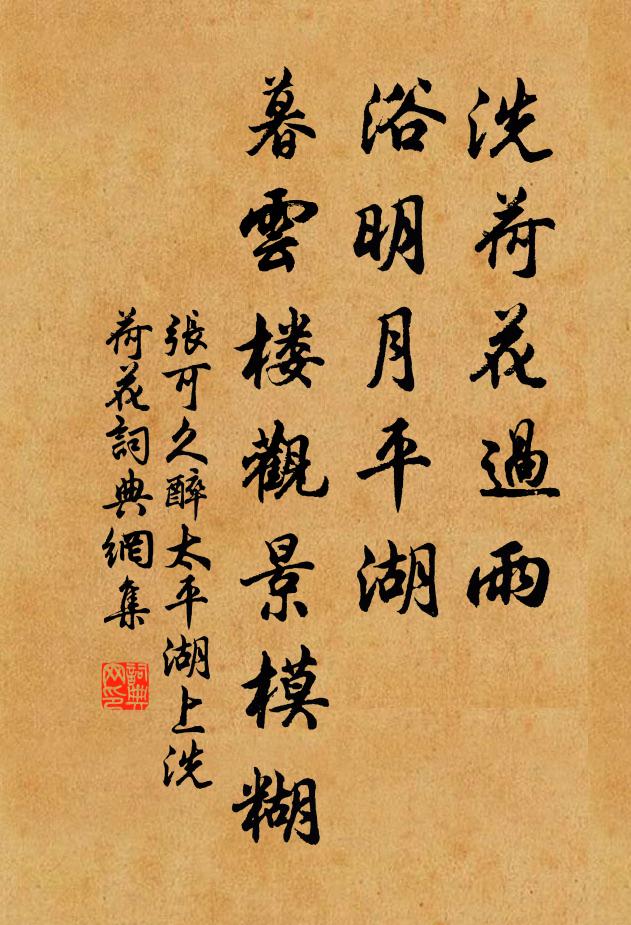 洗荷花過雨
浴明月平湖
暮雲楼觀景模糊
張可久醉太平湖上洗
荷花詞典網集
詞典网印